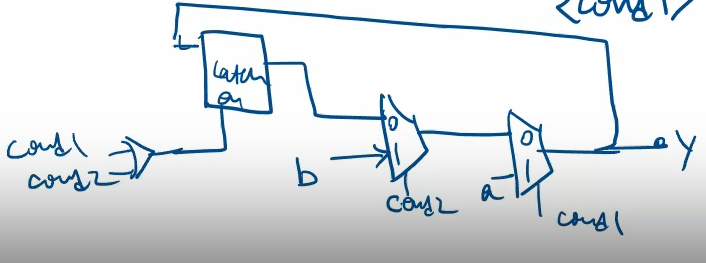 <cond1>
Latch
en
0
cond1
cond2
b
1
cond2
0
1
a
cond1
Y